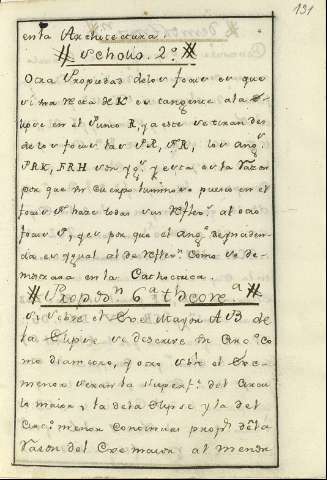 131
en la Architectura
Scholio. 2.º
Otra Propiedad de los focus es que
si una recta HK es tangente a la E-
lipse en el Punto R, y a este se tiran des
de los focus las PR, FR, los ang.s
PRK, FRH son yg.s y esta es la razon
por que Un Cuerpo luminoso puesto en el
focus P hace todas sus reflex.s al otro
focus F, y es por que el ang.º de ynciden
da es ygual al de reflex.n como se de-
mostrara en la Cathoctrica.
Propos.n 6.ª theore.ª
Si sobre el Exe Mayor AB de
la Elipse se descrive Un Circ.º co
mo diametro, y otro sbre el Exe
menor seran la superf.e del Circu
lo maior y la de la Elipse y la del
Circ.º menor Continuas prop.s de la
razon del Exe maior al menor